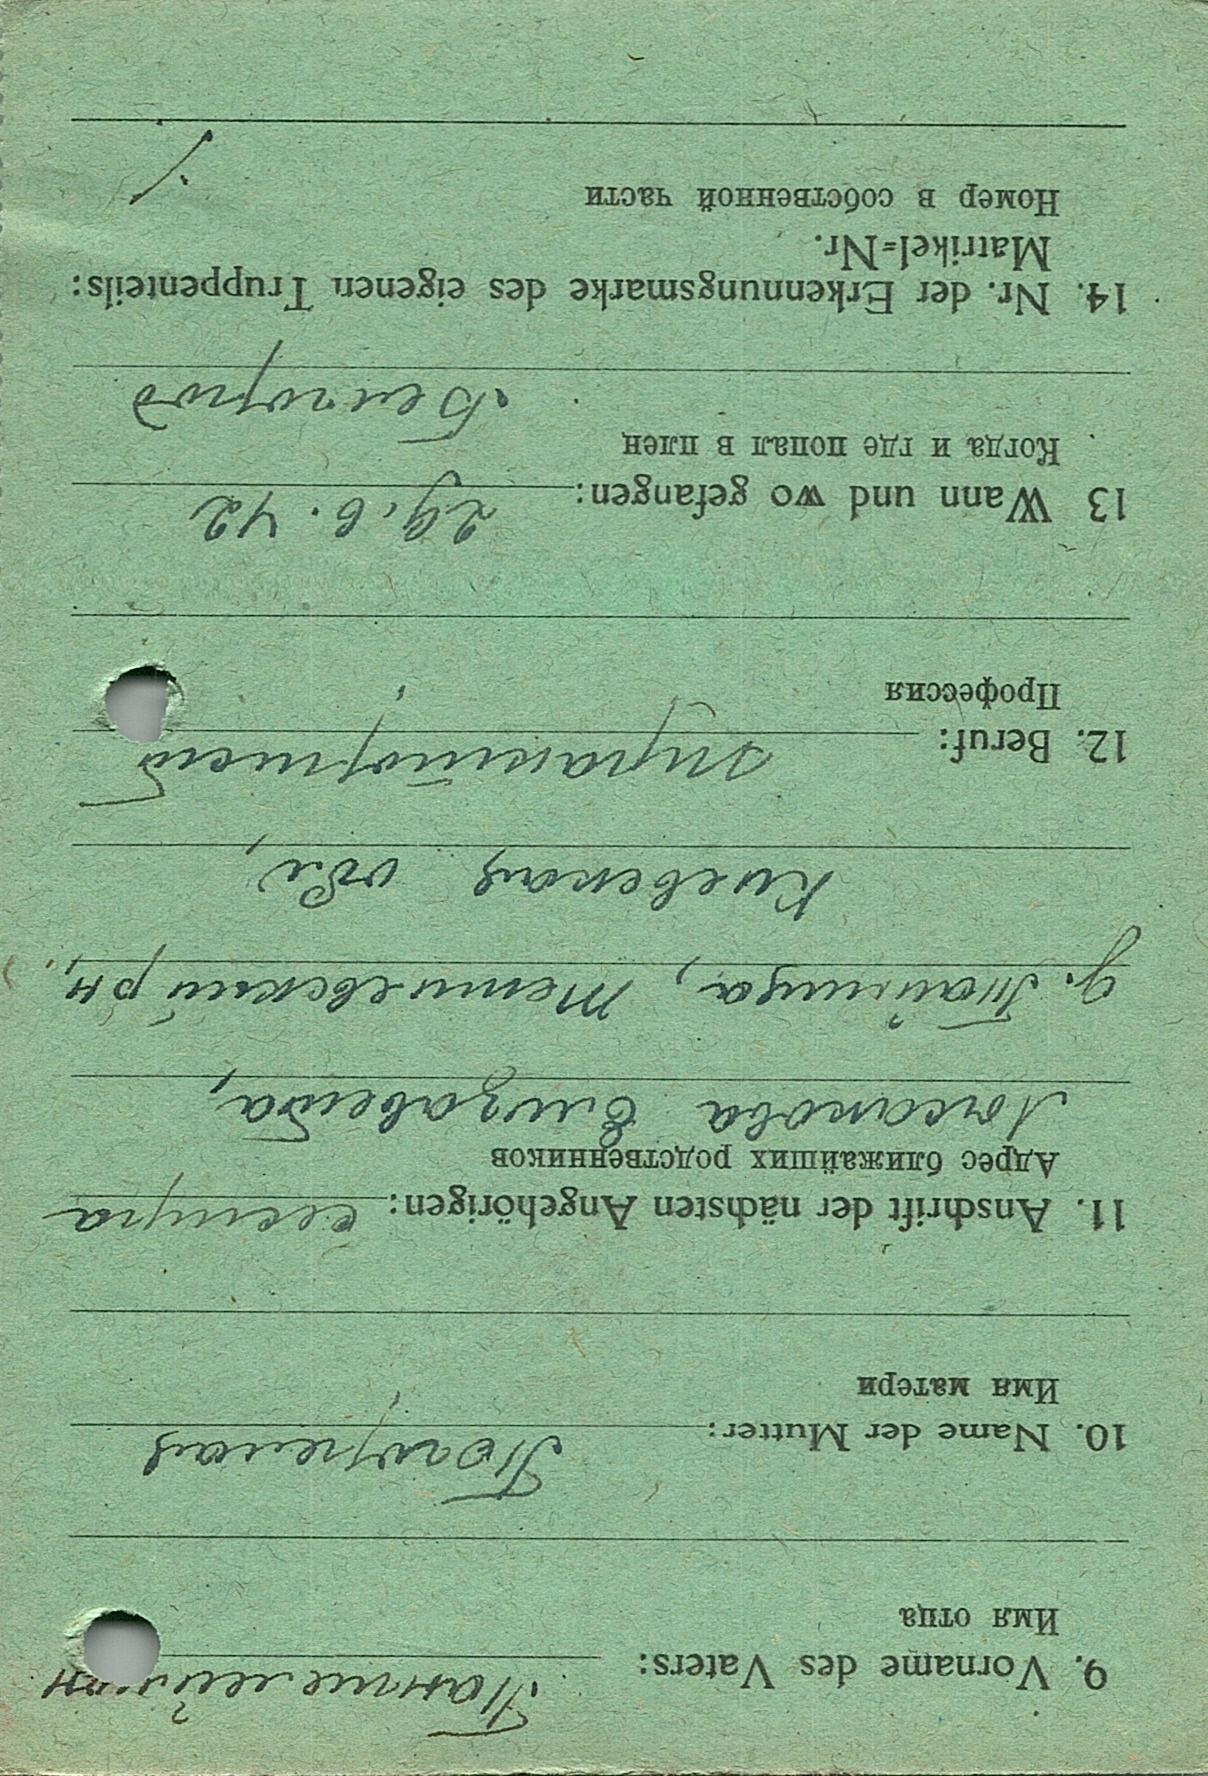 9. Vorname des Vaters: Пантелеймон
Имя отца
10. Name der Mutter: Пелагея
Имя матери
11. Anschrift der nächsten Angehörigen: сестра
Адрес ближайших родственников
Елизавета,
д. Тайница, Тетиевский рн,
Киевская обл,
12. Beruf: тракторист
Профессия
13 Wann und wo gefangen: 29. 6. 42
Когда и где попал в плен
Белгород
14. Nr. der Erkennungsmarke des eigenen Truppenteils:
Matrikel-Nr.
Номер в собственной части